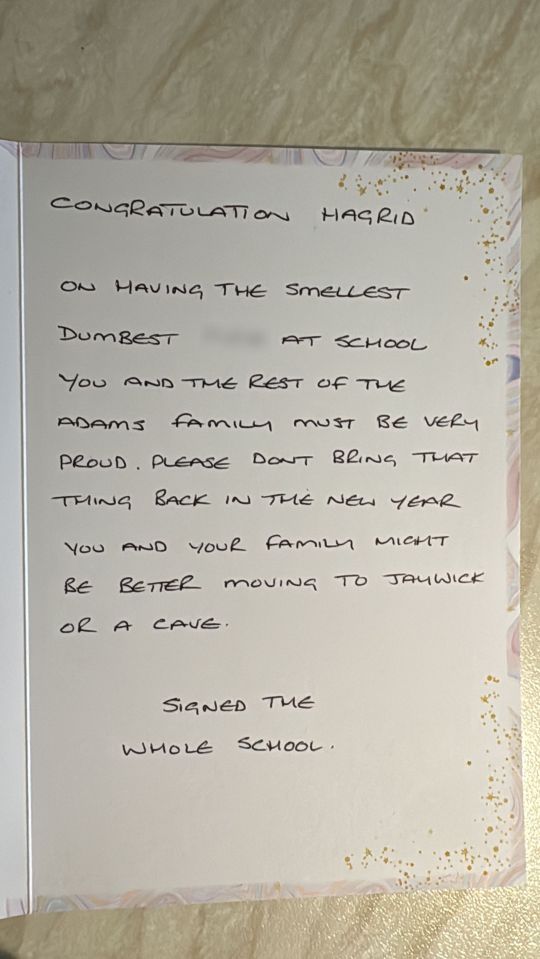 CONGRATULATION HAGRID
ON HAVING THE SMELLEST
DUMBEST AT SCHOOL
YOU AND THE REST OF THE
ADAMS FAMILY MUST BE VERY
PROUD. PLEASE DONT BRING THAT
THING BACK IN THE NEW YEAR
YOU AND YOUR FAMILY MIGHT
BE BETTER MOVING TO JAYWICK
OR A CAVE.
SIGNED THE
WHOLE SCHOOL.